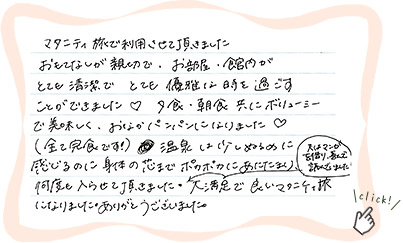 マタニティ旅で利用させて頂きました
おもてなしが親切で、お部屋・館内が
とても清潔で とても優雅な時を過ごす
ことができました♡ 夕食・朝食共にボリューミー
で美味しく、おなかパンパンになりました♡
(全て完食です!) 温泉はぬるめに
感じるのに身体の芯までポカポカにあたたまり、
何度も入らせて頂きました。大満足で良いマタニティ旅
になりました。ありがとうございました。
夫はマンガ
を借り、喜んで
読んでいました
click!